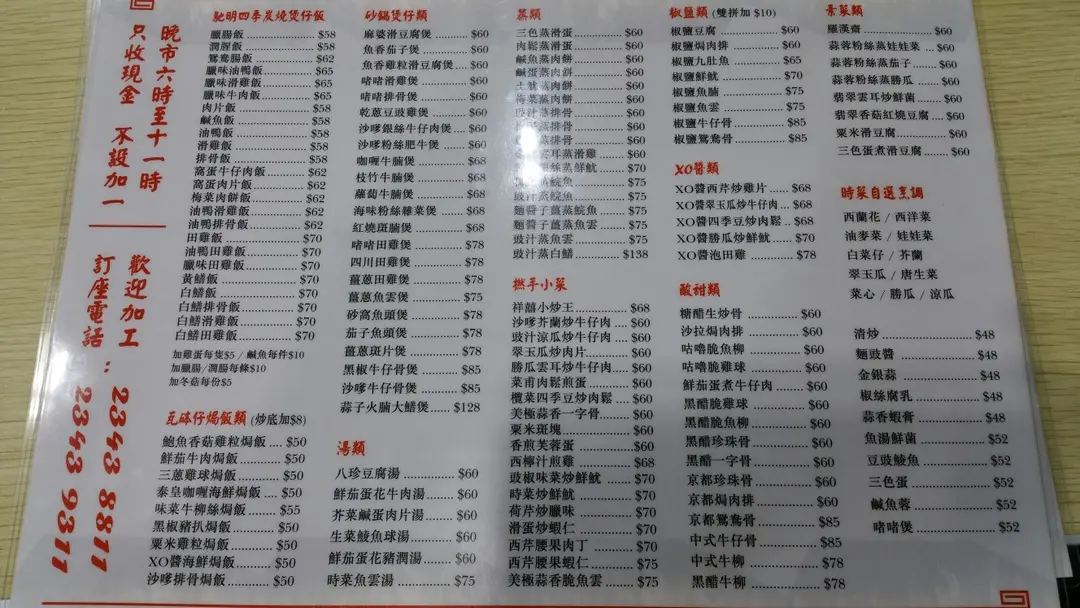 晚市六時至十一時
只收現金 不設加一
歡迎加工
訂座電話：2343 8811
2343 9311
馳明四季炭燒煲仔飯
臘腸飯 $58
潤腸飯 $58
鴛鴦腸飯 $62
臘味油鴨飯 $65
臘味滑雞飯 $65
臘味牛肉飯 $65
肉片飯 $58
鹹魚飯 $58
油鴨飯 $58
滑雞飯 $58
排骨飯 $58
窩蛋牛仔肉飯 $62
窩蛋肉片飯 $62
梅菜肉餅飯 $62
油鴨滑雞飯 $62
油鴨排骨飯 $62
田雞飯 $70
油鴨田雞飯 $70
臘味田雞飯 $70
黃鱔飯 $70
白鱔飯 $70
白鱔排骨飯 $70
白鱔滑雞飯 $70
白鱔田雞飯 $70
加雞蛋每隻$5 / 鹹魚每件$10
加臘腸/潤腸每條$10
加冬菇每份$5
瓦砵仔焗飯類 (炒底加$8)
鮑魚香菇雞粒焗飯 $50
鮮茄牛肉焗飯 $50
三蔥雞球焗飯 $50
泰皇咖喱海鮮焗飯 $50
味菜牛柳絲焗飯 $55
黑椒豬扒焗飯 $50
粟米雞粒焗飯 $50
XO醬海鮮焗飯 $50
沙嗲排骨焗飯 $50
砂鍋煲仔類
麻婆滑豆腐煲 $60
魚香茄子煲 $60
魚香雞粒滑豆腐煲 $60
啫啫滑雞煲 $60
啫啫排骨煲 $60
乾蔥豆豉雞煲 $60
沙嗲銀絲牛仔肉煲 $60
沙嗲粉絲肥牛煲 $60
咖喱牛腩煲 $68
枝竹牛腩煲 $68
蘿蔔牛腩煲 $68
海味粉絲雜菜煲 $68
紅燒斑腩煲 $68
啫啫田雞煲 $78
四川田雞煲 $78
薑蔥田雞煲 $78
薑蔥魚雲煲 $75
砂窩魚頭煲 $78
茄子魚頭煲 $78
薑蔥斑片煲 $78
黑椒牛仔骨煲 $85
沙嗲牛仔骨煲 $85
蒜子火腩大鱔煲 $128
湯類
八珍豆腐湯 $60
鮮茄蛋花牛肉湯 $60
芥菜鹹蛋肉片湯 $60
生菜鯪魚球湯 $60
鮮茄蛋花豬潤湯 $60
時菜魚雲湯 $75
蒸類
三色蒸滑蛋 $60
肉鬆蒸滑蛋 $60
鹹魚蒸肉餅 $60
鹹蛋蒸肉餅 $60
土魷蒸肉餅 $60
梅菜蒸肉餅 $60
豉汁蒸排骨 $60
蒸排骨 $60
雲耳蒸滑雞 $60
絲蒸鮮魷 $70
蒸鯇魚 $75
豉汁蒸鯇魚 $75
麵醬子薑蒸鯇魚 $75
麵醬子薑蒸魚雲 $75
豉汁蒸魚雲 $75
豉汁蒸白鱔 $138
撚手小菜
祥囍小炒王 $68
沙嗲芥蘭炒牛仔肉 $60
豉汁涼瓜炒牛仔肉 $60
翠玉瓜炒肉片 $60
勝瓜雲耳炒牛仔肉 $60
菜甫肉鬆煎蛋 $60
欖菜四季豆炒肉鬆 $60
美極蒜香一字骨 $60
粟米斑塊 $60
香煎芙蓉蛋 $60
西檸汁煎雞 $68
豉椒味菜炒鮮魷 $70
時菜炒鮮魷 $70
荷芹炒臘味 $70
滑蛋炒蝦仁 $70
西芹腰果肉丁 $70
西芹腰果蝦仁 $75
美極蒜香脆魚雲 $75
椒鹽類 (雙拼加 $10)
椒鹽豆腐 $60
椒鹽焗肉排 $60
椒鹽九肚魚 $65
椒鹽鮮魷 $70
椒鹽魚腩 $75
椒鹽魚雲 $75
椒鹽牛仔骨 $85
椒鹽鴛鴦骨 $85
XO醬類
XO醬西芹炒雞片 $68
XO醬翠玉瓜炒牛仔肉 $68
XO醬四季豆炒肉鬆 $68
XO醬勝瓜炒鮮魷 $70
XO醬泡田雞 $78
酸甜類
糖醋生炒骨 $60
沙拉焗肉排 $60
咕嚕脆魚柳 $60
咕嚕脆雞球 $60
鮮茄蛋煮牛仔肉 $60
黑醋脆雞球 $60
黑醋脆魚柳 $60
黑醋珍珠骨 $60
黑醋一字骨 $60
京都珍珠骨 $60
京都焗肉排 $60
京都鴛鴦骨 $85
中式牛仔骨 $85
中式牛柳 $78
黑醋牛柳 $78
素菜類
羅漢齋 $60
蒜蓉粉絲蒸娃娃菜 $60
蒜蓉粉絲蒸茄子 $60
蒜蓉粉絲蒸勝瓜 $60
翡翠雲耳炒鮮菌 $60
翡翠香菇紅燒豆腐 $60
粟米滑豆腐 $60
三色蛋煮滑豆腐 $60
時菜自選烹調
西蘭花 / 西洋菜
油麥菜 / 娃娃菜
白菜仔 / 芥蘭
翠玉瓜 / 唐生菜
菜心 / 勝瓜 / 涼瓜
清炒 $48
麵豉醬 $48
金銀蒜 $48
椒絲腐乳 $48
蒜香蝦膏 $48
魚湯鮮菌 $52
豆豉鯪魚 $52
三色蛋 $52
鹹魚蓉 $52
啫啫煲 $52